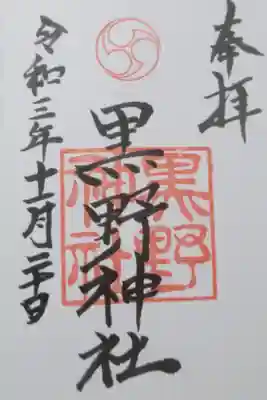 奉拝
黒野神社
黒野神社
令和三年十一月二十日